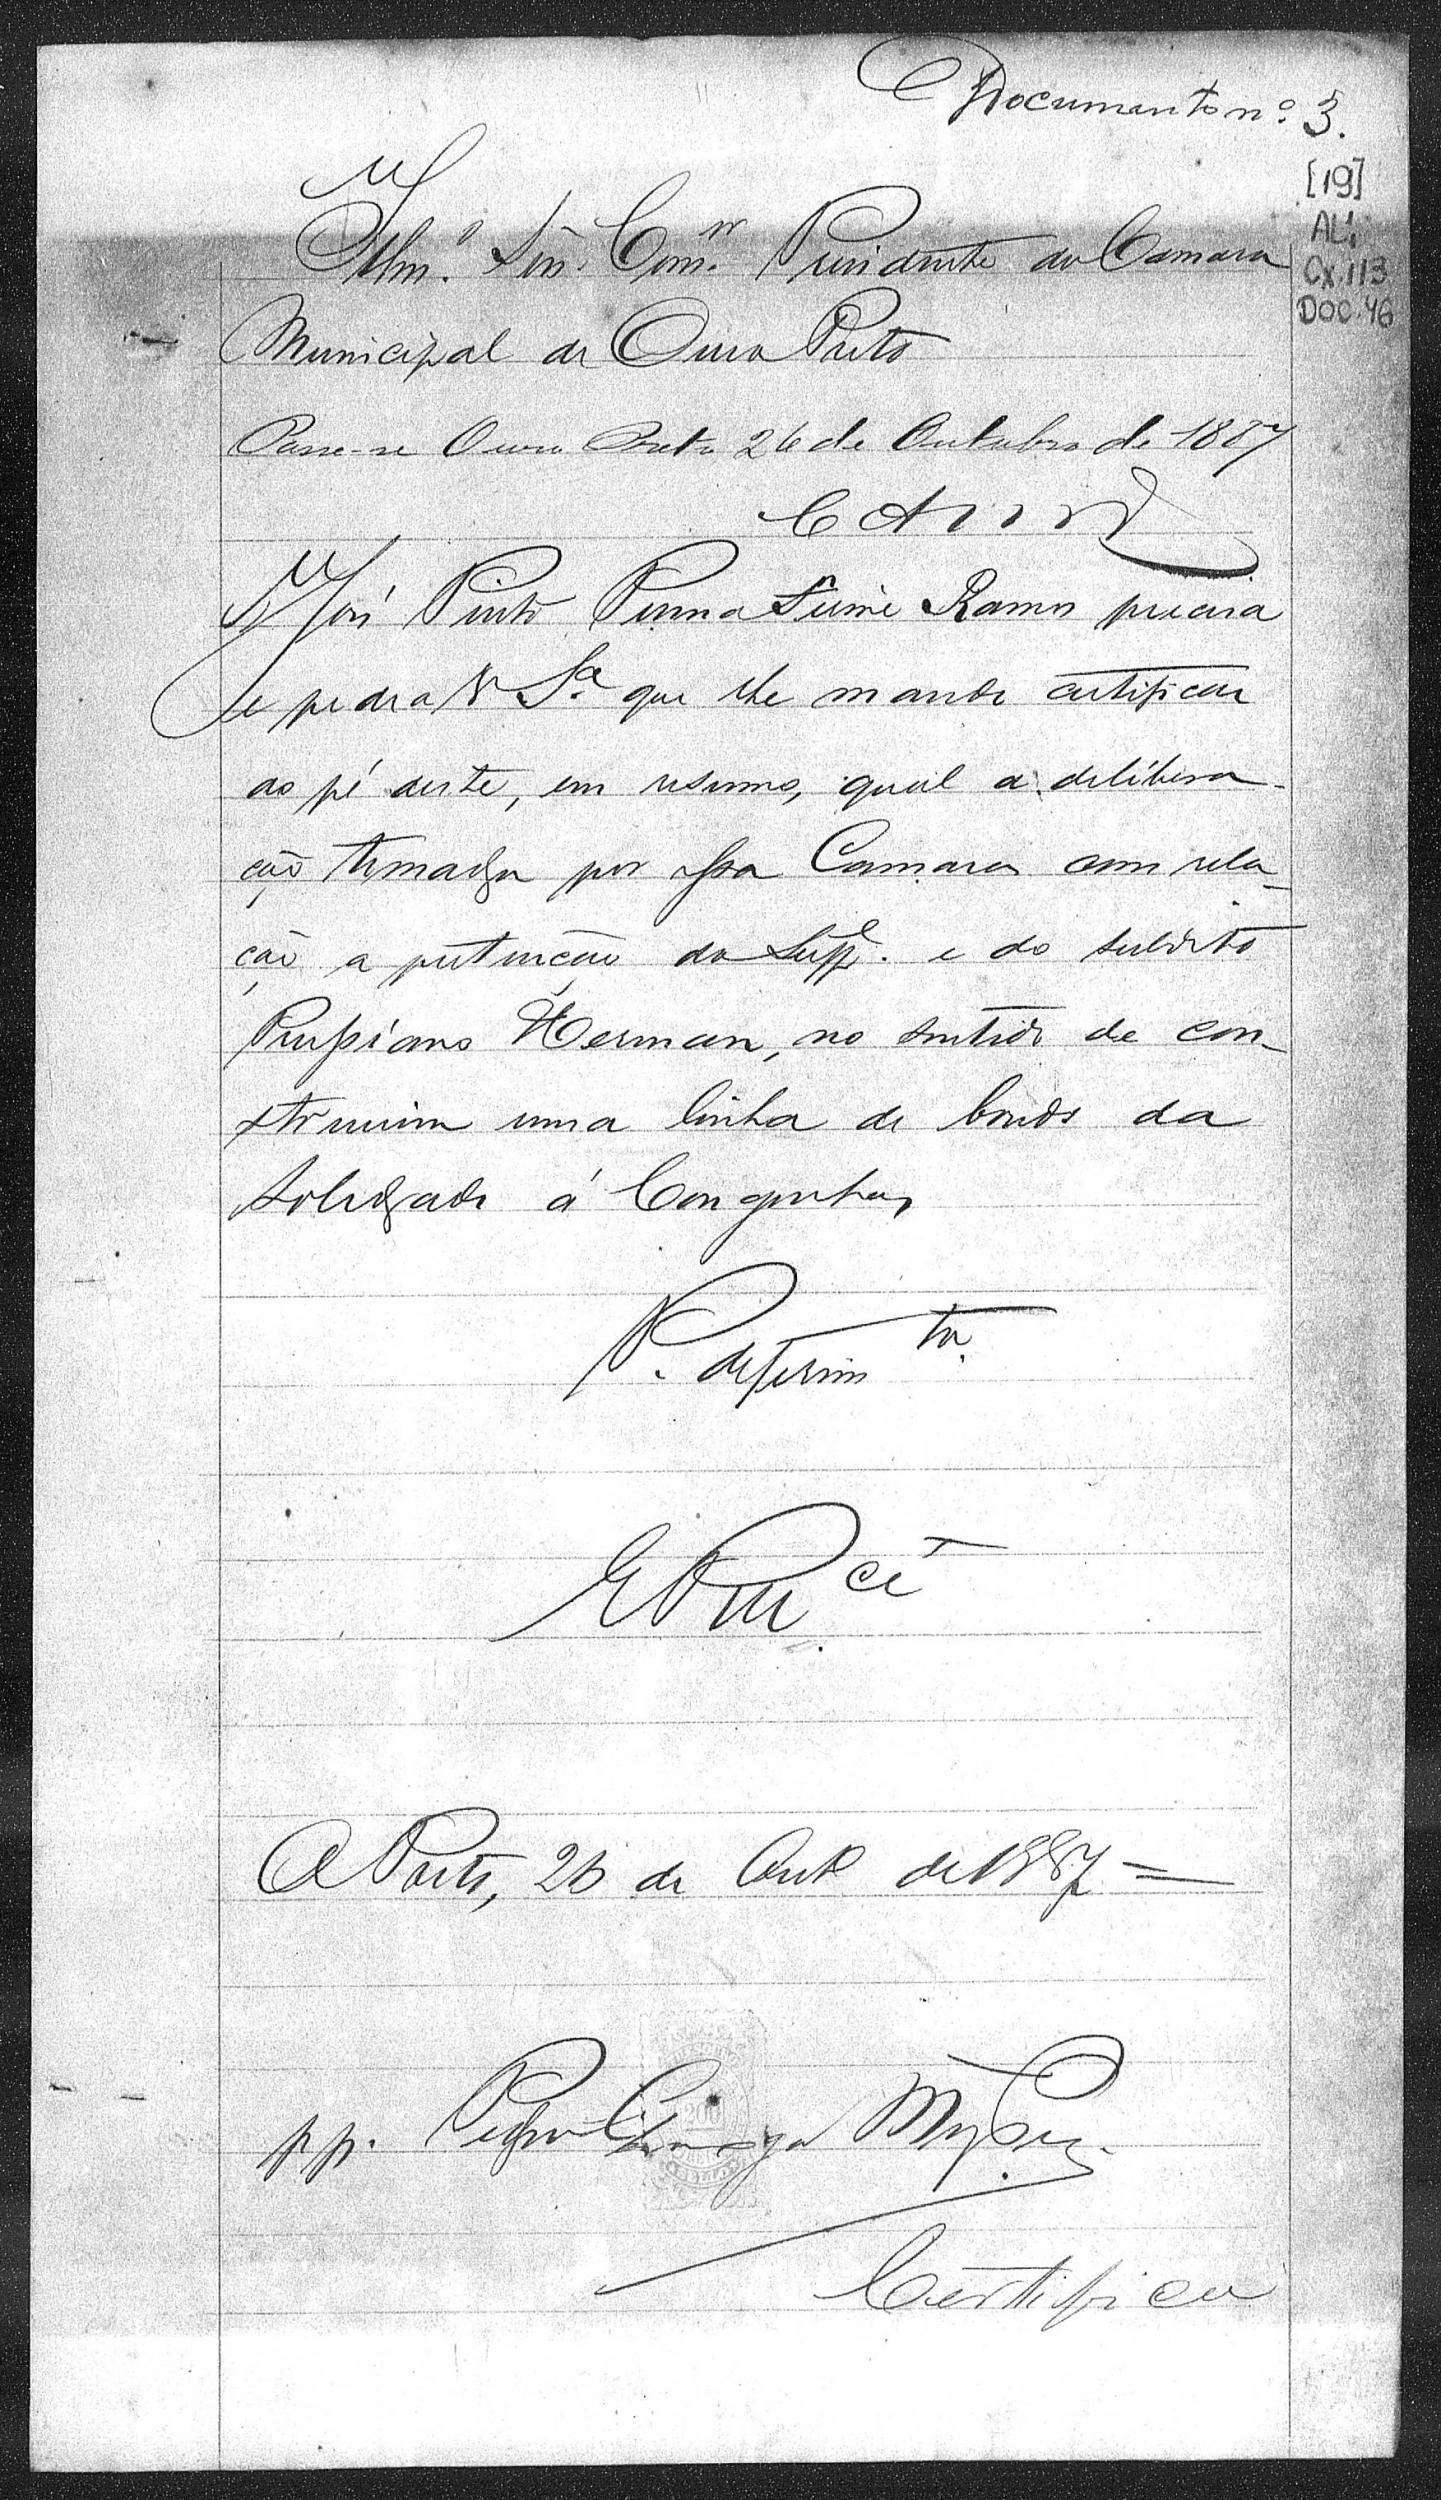 Documento nº 3.
[19]
AL1
CX.113
DOC.46
Illmº Snr. Comor Presidente da Camara
Municipal de Ouro Preto
Passe-se Ouro Preto 26 de Outubro de 1887
José Pinto Penna Ramos precisa
e pede a V Sª que lhe mande certificar
ao pé deste, em resumo, qual a delibera-
ção tomada por essa Camara com rela-
ção a pretenção do Suppe. e do subdito
Prussiano Herman, no sentido de con-
struirem uma linha de bonds da
Soledade á Congonhas
P. deferimto.
E R Mcê
O Preto, 26 de Outº de 1887 =
pp. Pedro
200
Certifico